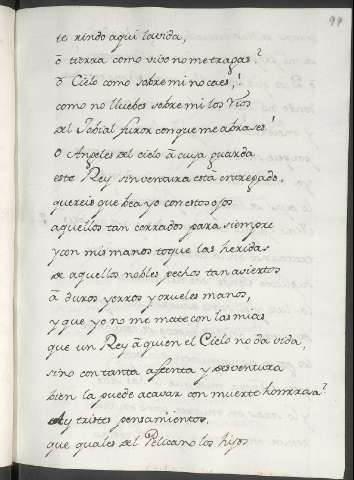 99
te rindo aqui la vida,
ô tierra como vivo no me tragas?
ô Cielo como sobre mi no caes,!
como no lluebes sobre mi los
del Jobial furor con que me abrases!
O Angeles del cielo â cuya guarda
este Rey sin ventura està entregado,
quereis que bea yo con estos ojos
aquellos tan cerrados para siempre
y con mis manos toque las heridas
de aquellos nobles pechos tan aviertos
â duros yerros y crueles manos,
y que yo no me mate con las mias
que un Rey â quien el Cielo no da vida,
sino con tanta afrenta y desventura
bien la puede acavar con muerte honrrada?
Ay tristes pensamientos,
que quales del Pelicano los hijos